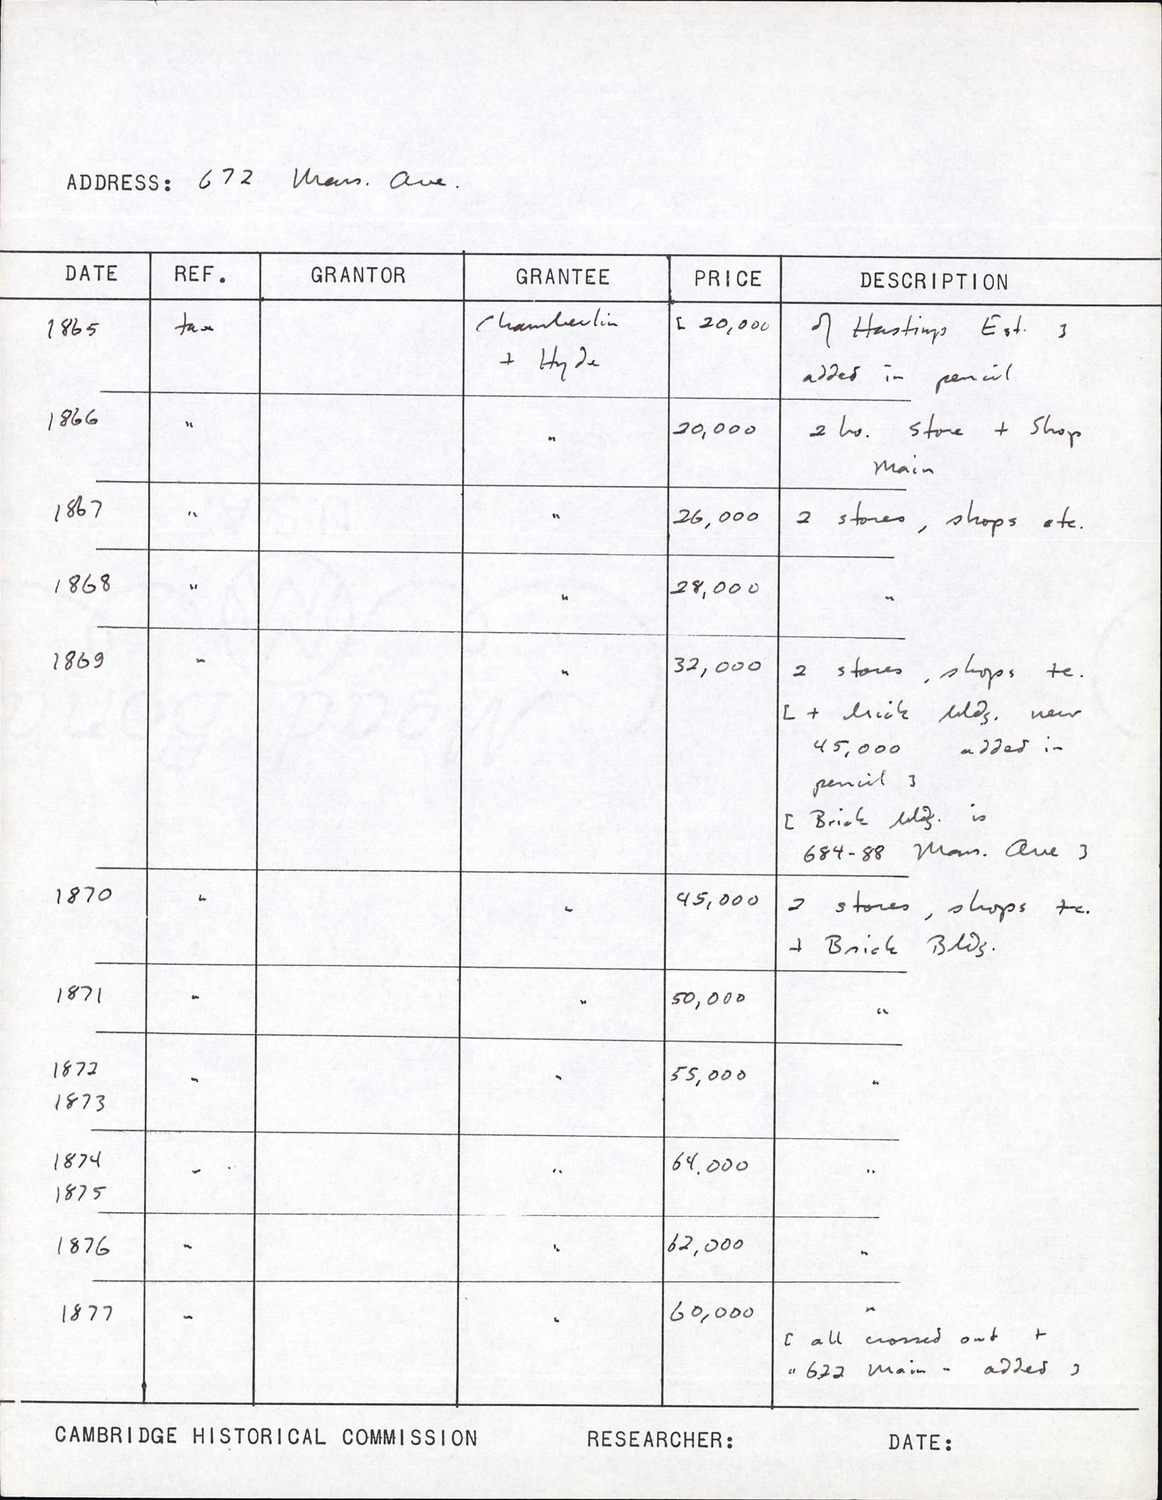 ADDRESS: 672 Mass. Ave.
DATE REF. GRANTOR GRANTEE PRICE DESCRIPTION
1865 tax Chamberlin [ 20,000 of Hastings Est. ]
+ Hyde added in pencil
1866 " " 20,000 2 ho. store + Shop
Main
1867 " " 26,000 2 stores, shops etc.
1868 " " 28,000 "
1869 " " 32,000 2 stores, shops &c.
[ + brick bldg. new
45,000 added in
pencil ]
[ Brick bldg. is
684-88 Mass. Ave ]
1870 " " 45,000 2 stores, shops &c.
+ Brick Bldg.
1871 " " 50,000 "
1872 " " 55,000 "
1873
1874 " " 64,000 "
1875
1876 " " 62,000 "
1877 " " 60,000 "
[ all crossed out +
"622 Main" added ]
CAMBRIDGE HISTORICAL COMMISSION RESEARCHER: DATE: